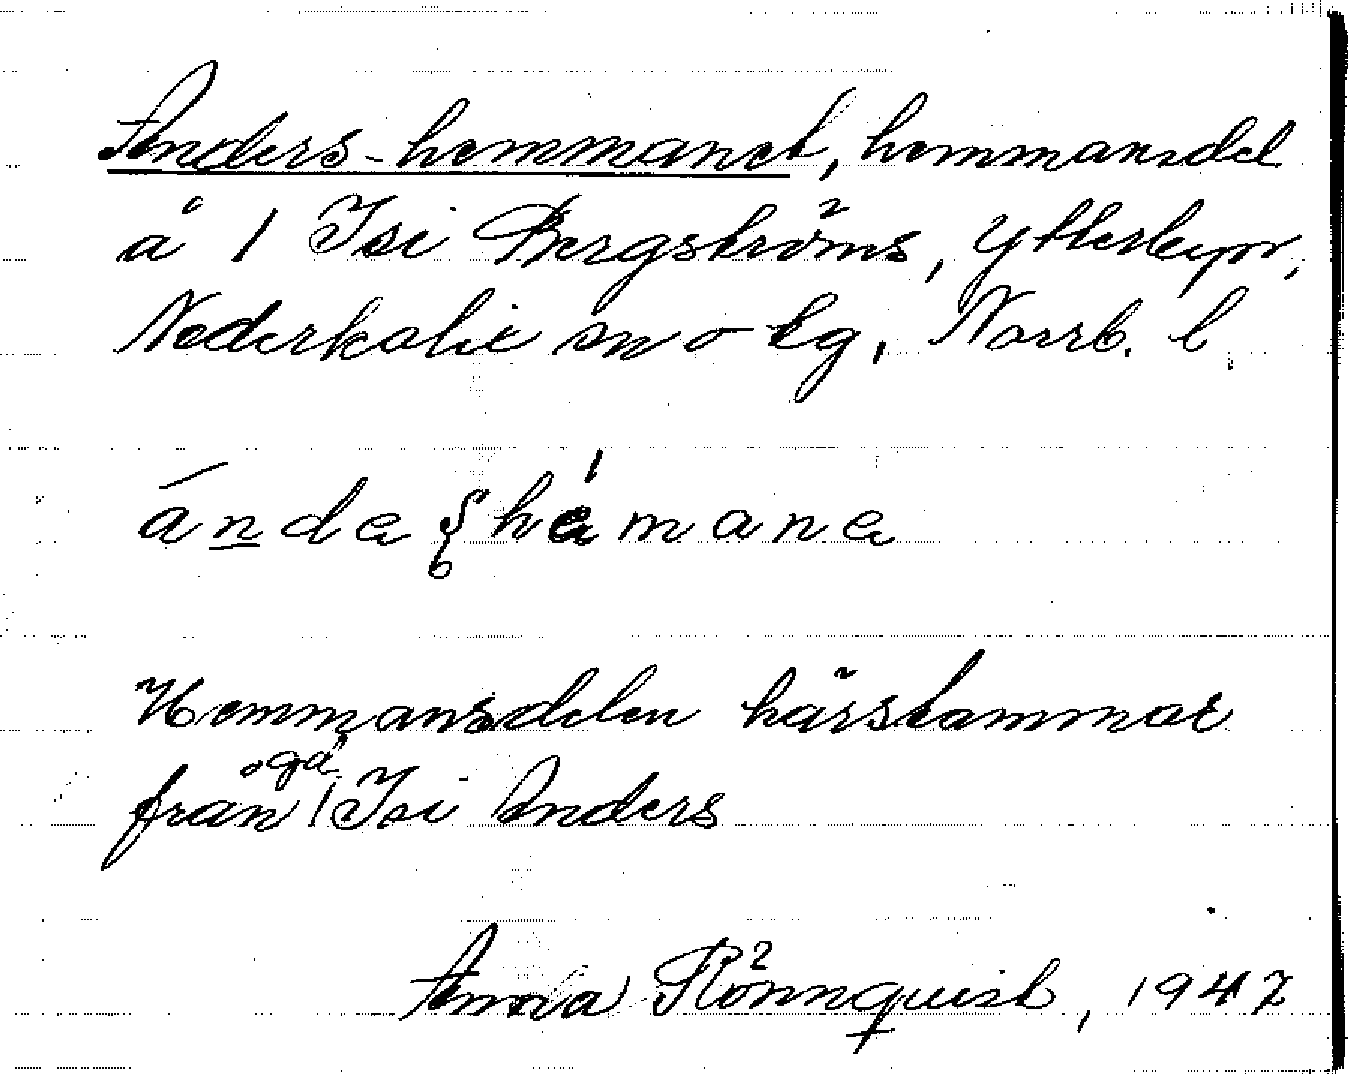 Anders-hemmanet, hemmansdel
å 1 Isi Bergströms, Ytterbyn,
Nederkalix sn o tg, Norrb. l
hemana
Hemmansdelen härstammar
från 1 Isi Anders
Anna Rönnquist, 1947